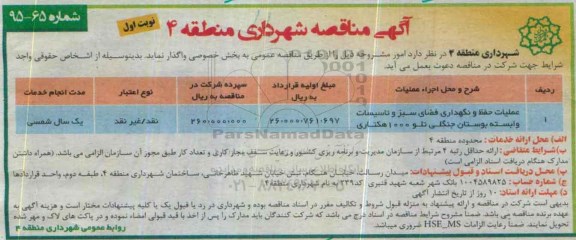 شماره ۶۵-۹۵
آگهی مناقصه شهرداری منطقه ۴
نوبت اول
شهرداری منطقه ۴ در نظر دارد امور مشروحه ذیل را از طریق مناقصه عمومی به بخش خصوصی واگذار نماید. بدینوسیله از اشخاص حقوقی واجد
شرایط جهت شرکت در مناقصه دعوت بعمل می آید.
ردیف
شرح و محل اجراء عملیات
مبلغ اولیه قرارداد به ریال
سپرده شرکت در مناقصه به ریال
نوع اعتبار
مدت انجام خدمات
۱
عملیات حفظ و نگهداری فضای سبز و تاسیسات وابسته بوستان جنگلی تلو ۱۰۰۰ هکتاری
نقد/غیر نقد
یک سال شمسی
ParsNamadData
الف) محل ارائه خدمات : محدوده منطقه ۴
ب) شرایط متقاضی: ارائه حداقل رتبه ۴ مرتبط از سازمان مدیریت و برنامه ریزی کشور و رعایت سقف مجاز کاری و تعداد کار طبق مجوز آن سازمان الزامی می باشد. (همراه داشتن
مدارک هنگام دریافت اسناد الزامی است)
ج) محل دریافت اسناد و قبول پیشنهادات: میدان رسالت، خیابان هنگام، نبش خیابان شهید طاهرخانی، ساختمان شهرداری منطقه ۴، طبقه دوم، واحد قراردادها
بانک شهر شعبه شهید قنبری
به نام شهرداری منطقه ۴
د) مهلت ارائه اسناد: ۱۰ روز از تاریخ انتشار آگهی
بدیهی است شرکت در مناقصه و ارائه پیشنهاد به منزله قبول شروط و تکالیف مقرر در اسناد مناقصه بوده و شهرداری در رد یا قبول یک یا کلیه پیشنهادات مختار است و هزینه آگهی به
عهده برنده مناقصه می باشد. ضمناً مشروح شرایط مناقصه در اسناد درج می باشد که شرکت کنندگان باید مدارک را پس از اخذ با قید قبولی امضاء نموده و در پاکت های لاک و مهر شده
تحویل نمایند. ضمناً رعایت الزامات HSE_MS ضروری میباشد.
روابط عمومی شهرداری منطقه ۴